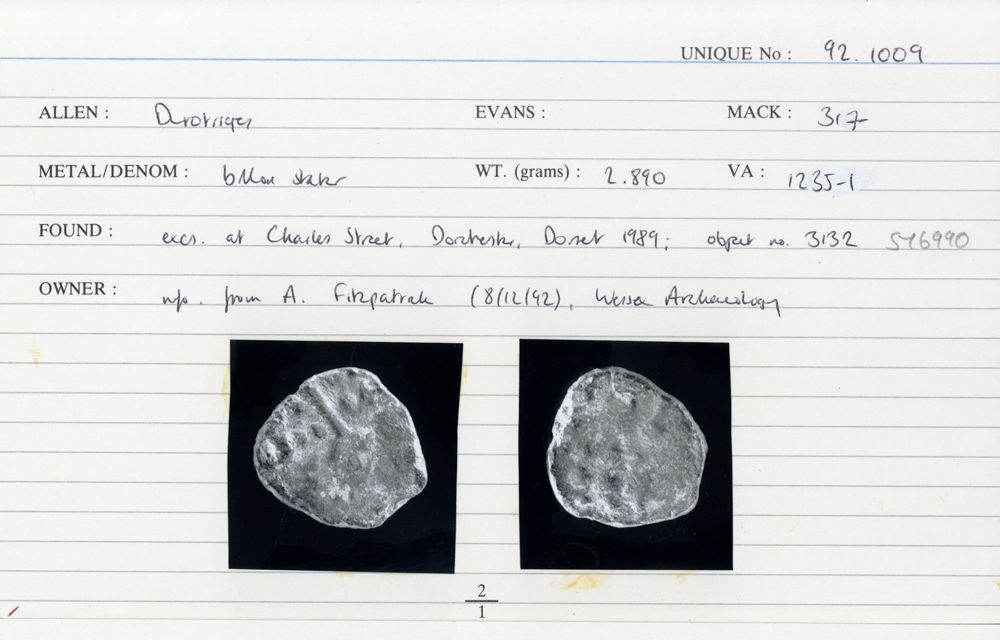 UNIQUE No : 92.1009
ALLEN : Durotriges EVANS : MACK : 317
METAL/DENOM : billon stater WT. (grams) : 2.890 VA : 1235-1
FOUND : excs. at Charles Street, Dorchester, Dorset 1989; object no. 3132 SY6990
OWNER : info. from A. Fitzpatrick (8/12/92), Wessex Archaeology
2
1